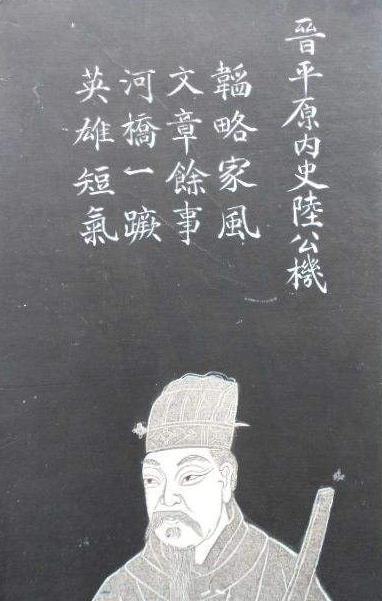 晉平原内史陸公機
韜略家風
文章餘事
河橋一蹶
英雄短氣